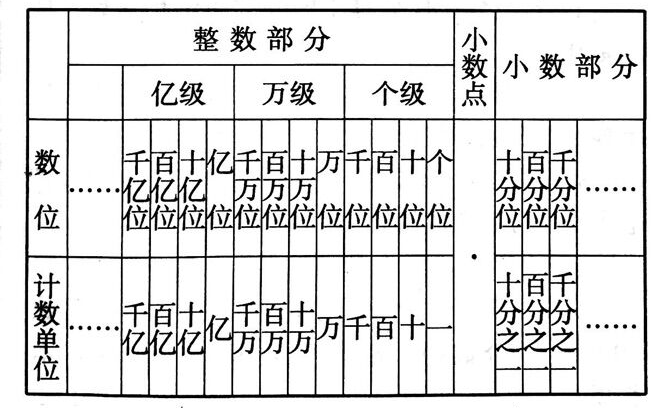 整数部分 小数点 小数部分
亿级 万级 个级
数位 …… 千亿位 百亿位 十亿位 亿位 千万位 百万位 十万位 万位 千位 百位 十位 个位 · 十分位 百分位 千分位 ……
计数单位 …… 千亿 百亿 十亿 亿 千万 百万 十万 万 千 百 十 一 十分之一 百分之一 千分之一 ……